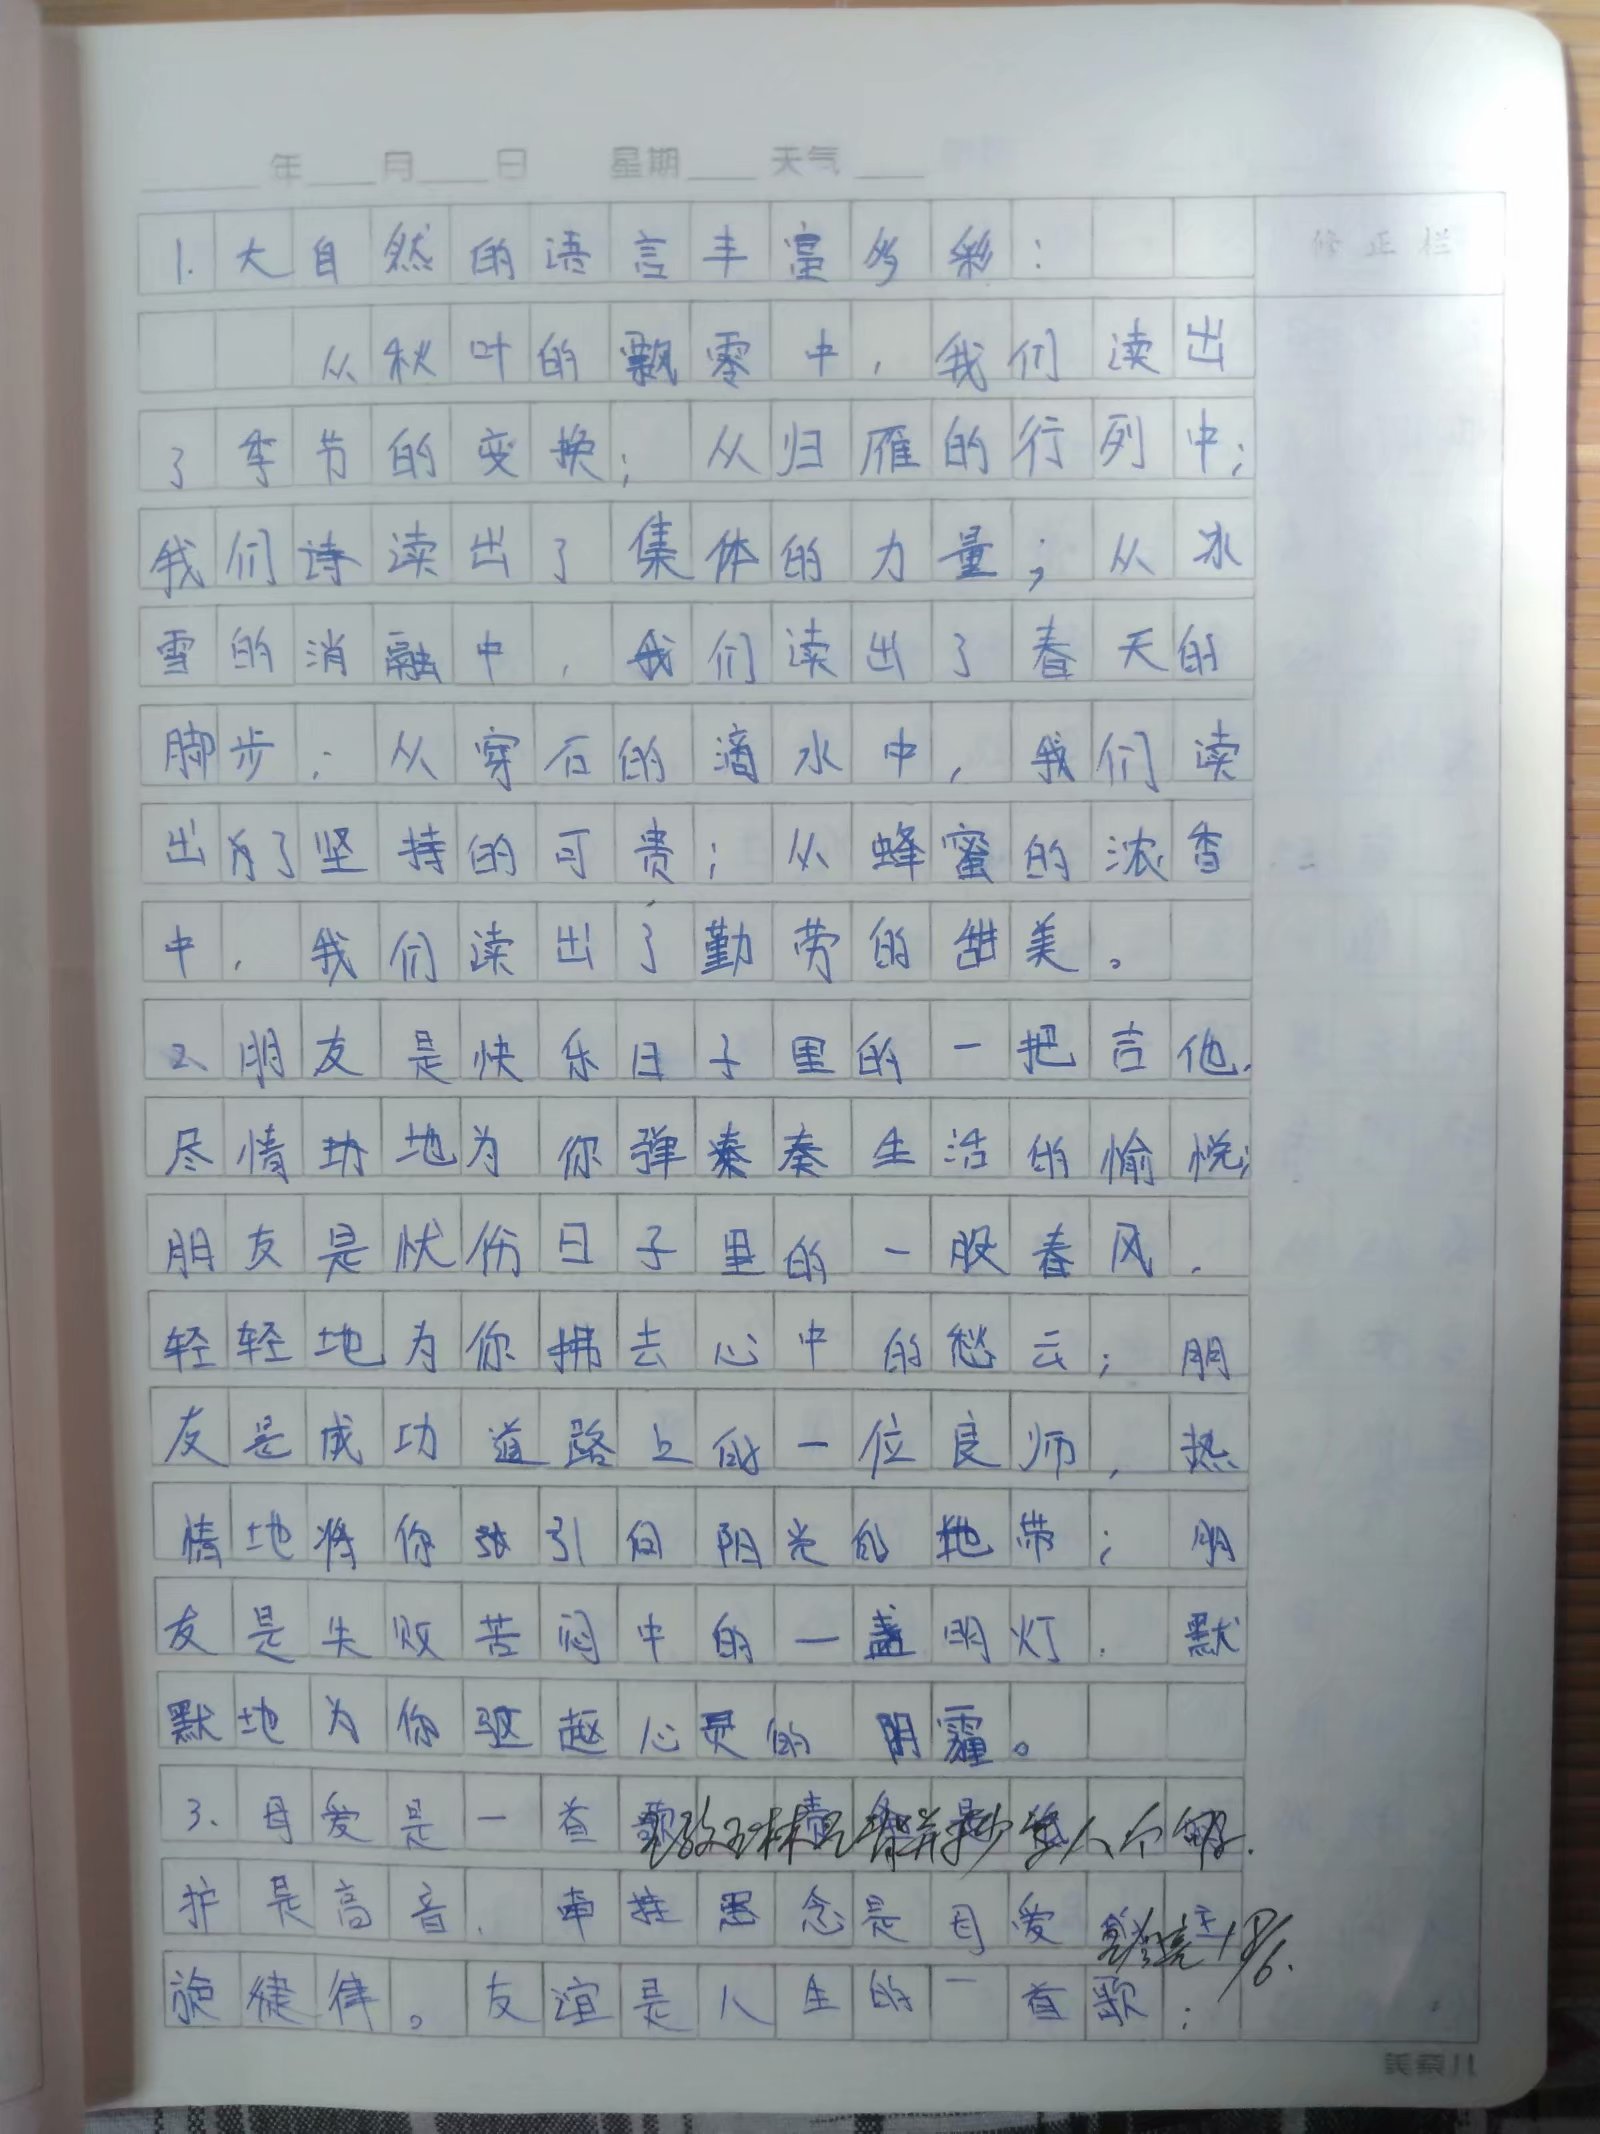 年 月 日 星期 天气
修正栏
1.大自然的语言丰富多彩:
从秋叶的飘零中,我们读出
了季节的变换;从归雁的行列中;
我们诗读出了集体的力量;从冰
雪的消融中,我们读出了春天的
脚步;从穿石的滴水中,我们读
出为了坚持的可贵;从蜂蜜的浓香
中,我们读出了勤劳的甜美。
2、朋友是快乐日子里的一把吉他,
尽情功地为你弹秦奏生活的愉悦;
朋友是忧伤日子里的一股春风,
轻轻地为你拂去心中的愁云;朋
友是成功道路上的一位良师,热
情地将你引向阳光的地带;朋
友是失败苦闷中的一盏明灯,默
默地为你驱赵心灵的阴霾。
3、母爱是一首歌
护是高音,牵挂思念是母爱
旋律律。友谊是人生的一首歌;